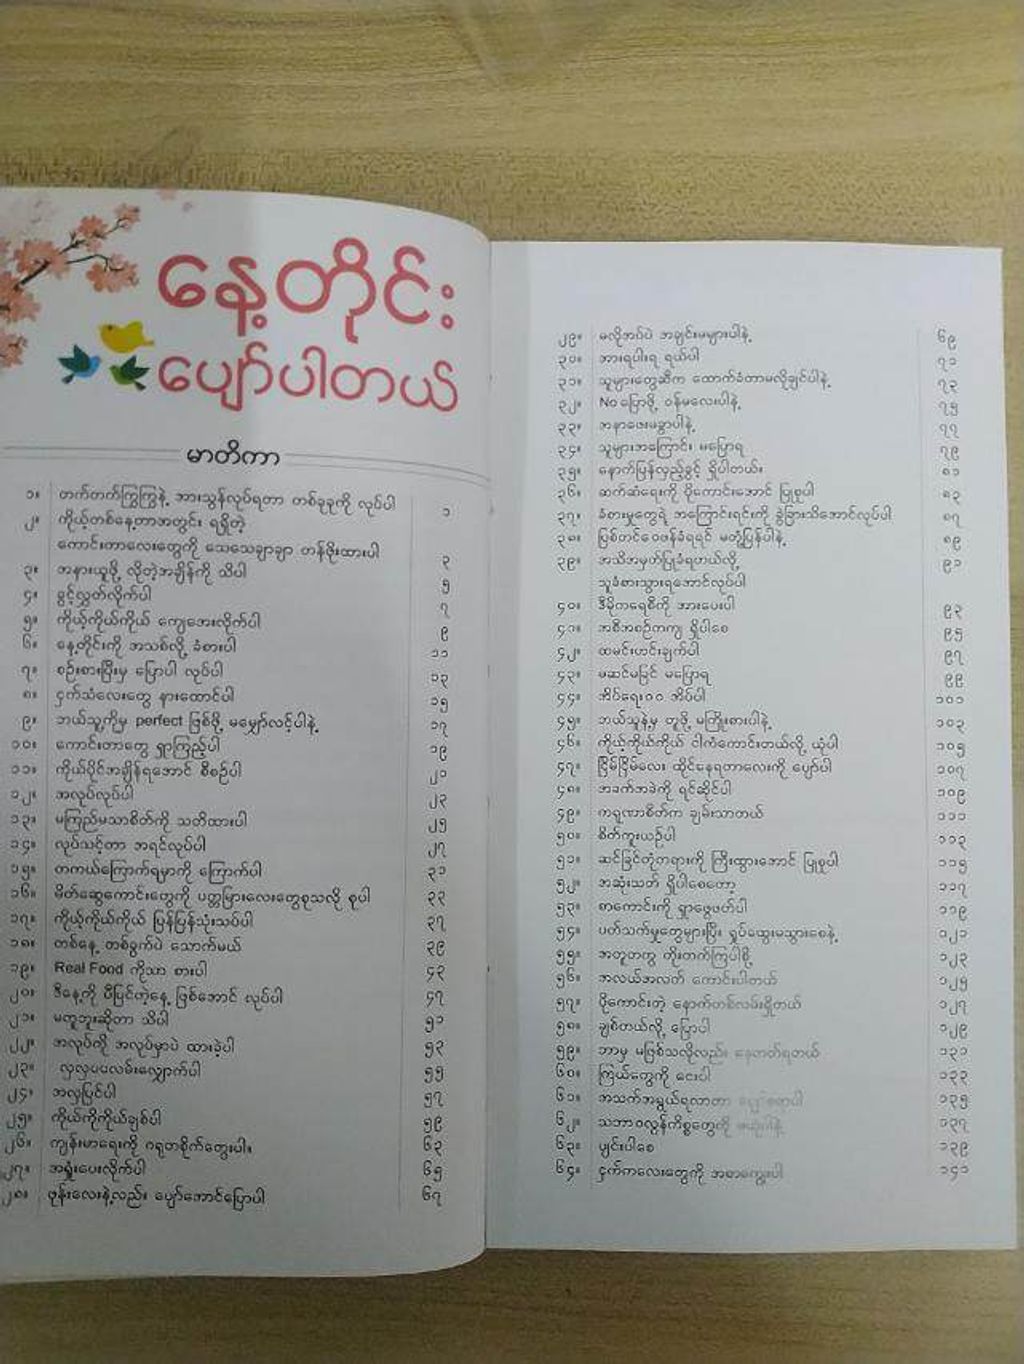 နေ့တိုင်း
ပျော်ပါတယ်
မာတိကာ
၁။ တက်တက်ကြွကြွနဲ့ အားသွန်လုပ်ရတာ တစ်ခုခုကို လုပ်ပါ ၁
၂။ ကိုယ့်တစ်နေ့တာအတွင်း ရရှိတဲ့
ကောင်းတာလေးတွေကို သေသေချာချာ တန်ဖိုးထားပါ ၃
၃။ အနားယူဖို့ လိုတဲ့အချိန်ကို သိပါ ၅
၄။ ခွင့်လွှတ်လိုက်ပါ ၇
၅။ ကိုယ့်ကိုယ်ကိုယ် ကျေအေးလိုက်ပါ ၉
၆။ နေ့တိုင်းကို အသစ်လို့ ခံစားပါ ၁၁
၇။ စဉ်းစားပြီးမှ ပြောပါ လုပ်ပါ ၁၃
၈။ ငှက်သံလေးတွေ နားထောင်ပါ ၁၅
၉။ ဘယ်သူ့ကိုမှ perfect ဖြစ်ဖို့ မမျှော်လင့်ပါနဲ့ ၁၇
၁၀။ ကောင်းတာတွေ ရှာကြည့်ပါ ၁၉
၁၁။ ကိုယ်ပိုင်အချိန်ရအောင် စီစဉ်ပါ ၂၁
၁၂။ အလုပ်လုပ်ပါ ၂၃
၁၃။ မကြည်မသာစိတ်ကို သတိထားပါ ၂၅
၁၄။ လုပ်သင့်တာ အရင်လုပ်ပါ ၂၇
၁၅။ တကယ်ကြောက်ရမှာကို ကြောက်ပါ ၃၁
၁၆။ မိတ်ဆွေကောင်းတွေကို ပတ္တမြားလေးတွေစုသလို စုပါ ၃၃
၁၇။ ကိုယ့်ကိုယ်ကိုယ် ပြန်ပြန်သုံးသပ်ပါ ၃၇
၁၈။ တစ်နေ့ တစ်ခွက်ပဲ သောက်မယ် ၃၉
၁၉။ Real Food ကိုသာ စားပါ ၄၃
၂၀။ ဒီနေ့ကို ပီပြင်တဲ့နေ့ ဖြစ်အောင် လုပ်ပါ ၄၇
၂၁။ မတူဘူးဆိုတာ သိပါ ၅၁
၂၂။ အလုပ်ကို အလုပ်မှာပဲ ထားခဲ့ပါ ၅၃
၂၃။ လှလှပပလမ်းလျှောက်ပါ ၅၅
၂၄။ အလှပြင်ပါ ၅၇
၂၅။ ကိုယ်ကိုကိုယ်ချစ်ပါ ၅၉
၂၆။ ကျန်းမာရေးကို ဂရုတစိုက်တွေးပါ။ ၆၃
၂၇။ အရှုံးပေးလိုက်ပါ ၆၅
၂၈။ ဖုန်းလေးနဲ့လည်း ပျော်အောင်ပြောပါ ၆၇
၂၉။ မလိုအပ်ပဲ အချင်းမများပါနဲ့ ၆၉
၃၀။ အားရပါးရ ရယ်ပါ ၇၁
၃၁။ သူများတွေဆီက ထောက်ခံတာမလိုချင်ပါနဲ့ ၇၃
၃၂။ No ပြောဖို့ ဝန်မလေးပါနဲ့ ၇၅
၃၃။ အနာဖေးမခွာပါနဲ့ ၇၇
၃၄။ သူများအကြောင်း မပြောရ ၇၉
၃၅။ နောက်ပြန်လှည့်ခွင့် ရှိပါတယ်။ ၈၁
၃၆။ ဆက်ဆံရေးကို ပိုကောင်းအောင် ပြုစုပါ ၈၃
၃၇။ ခံစားမှုတွေရဲ့ အကြောင်းရင်းကို ခွဲခြားသိအောင်လုပ်ပါ ၈၇
၃၈။ ပြစ်တင်ဝေဖန်ခံရရင် မတုံ့ပြန်ပါနဲ့ ၈၉
၃၉။ အသိအမှတ်ပြုခံရတယ်လို့ ၉၁
သူခံစားသွားရအောင်လုပ်ပါ
၄၀။ ဒီမိုကရေစီကို အားပေးပါ ၉၃
၄၁။ အစီအစဉ်တကျ ရှိပါစေ ၉၅
၄၂။ ထမင်းဟင်းချက်ပါ ၉၇
၄၃။ မဆင်မခြင် မပြောရ ၉၉
၄၄။ အိပ်ရေးဝဝ အိပ်ပါ ၁၀၁
၄၅။ ဘယ်သူနဲ့မှ တူဖို့ မကြိုးစားပါနဲ့ ၁၀၃
၄၆။ ကိုယ့်ကိုယ်ကိုယ် ငါကံကောင်းတယ်လို့ ယုံပါ ၁၀၅
၄၇။ ငြိမ်ငြိမ်လေး ထိုင်နေရတာလေးကို ပျော်ပါ ၁၀၇
၄၈။ အခက်အခဲကို ရင်ဆိုင်ပါ ၁၀၉
၄၉။ ကရုဏာစိတ်က ချမ်းသာတယ် ၁၁၁
၅၀။ စိတ်ကူးယဉ်ပါ ၁၁၃
၅၁။ ဆင်ခြင်တုံတရားကို ကြီးထွားအောင် ပြုစုပါ ၁၁၅
၅၂။ အဆုံးသတ် ရှိပါစေတော့ ၁၁၇
၅၃။ စာကောင်းကို ရှာဖွေဖတ်ပါ ၁၁၉
၅၄။ ပတ်သက်မှုတွေများပြီး ရှုပ်ထွေးမသွားစေနဲ့ ၁၂၁
၅၅။ အတူတကွ တိုးတက်ကြပါစို့ ၁၂၃
၅၆။ အလယ်အလတ် ကောင်းပါတယ် ၁၂၅
၅၇။ ပိုကောင်းတဲ့ နောက်တစ်လမ်းရှိတယ် ၁၂၇
၅၈။ ချစ်တယ်လို့ ပြောပါ ၁၂၉
၅၉။ ဘာမှ မဖြစ်သလိုလည်း နေတတ်ရတယ် ၁၃၁
၆၀။ ကြယ်တွေကို ငေးပါ ၁၃၃
၆၁။ အသက်အရွယ်ရလာတာ ၁၃၅
၆၂။ သဘာဝလွန်ကိစ္စတွေကို မယုံပါနဲ့ ၁၃၇
၆၃။ ပျင်းပါစေ ၁၃၉
၆၄။ ငှက်ကလေးတွေကို အစာကျွေးပါ ၁၄၁